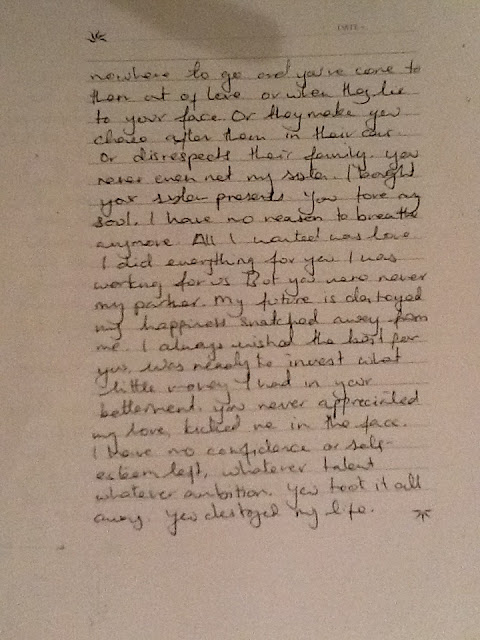 DATE-
nowhere to go and you've come to
them out of love or when they lie
to your face. Or they make you
chase after them in their car.
Or disrespects their family. you
never even met my sister. I bought
your sister presents you tore my
soul. I have no reason to breathe
anymore. All I wanted was love
I did everything for you I was
working for us But you were never
my partner. My future is destroyed
my happiness snatched away from
me. I always wished the best for
you, was ready to invest what
little money I had in your
betterment. you never appreciated
my love, kicked me in the face.
I have no confidence or self-
esteem left, whatever talent
whatever ambition. you took it all
away. you destroyed my life.